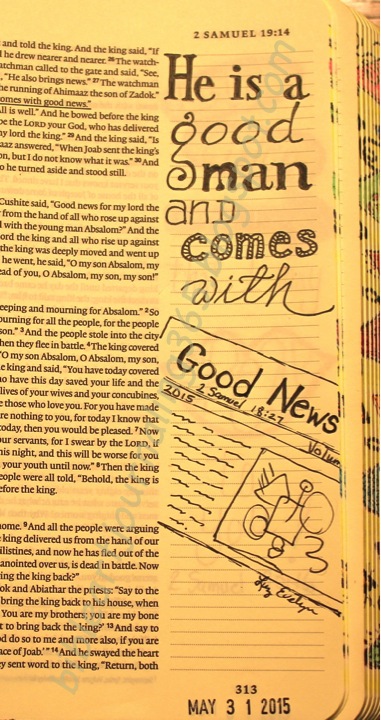 2 SAMUEL 19:14
and told the king. And the king said, "If
he drew nearer and nearer. 26 The watch-
watchman called to the gate and said, "See,
"He also brings news." 27 The watchman
the running of Ahimaaz the son of Zadok."
comes with good news."
All is well." And he bowed before the king
be the LORD your God, who has delivered
my lord the king." 29 And the king said, "Is
answered, "When Joab sent the king's
on, but I do not know what it was." 30 And
o he turned aside and stood still.
Cushite said, "Good news for my lord the
from the hand of all who rose up against
l with the young man Absalom?" And the
ord the king and all who rise up against
the king was deeply moved and went up
he went, he said, "O my son Absalom, my
ead of you, O Absalom, my son, my son!"
eeping and mourning for Absalom." 2 So
ourning for all the people, for the people
son." 3 And the people stole into the city
hen they flee in battle. 4 The king covered
"O my son Absalom, O Absalom, my son,
e king and said, "You have today covered
o have this day saved your life and the
lives of your wives and your concubines,
those who love you. For you have made
re nothing to you, for today I know that
oday, then you would be pleased. 7 Now
our servants, for I swear by the LORD, if
his night, and this will be worse for you
your youth until now." 8 Then the king
eople were all told, "Behold, the king is
efore the king.
home. 9 And all the people were arguing
king delivered us from the hand of our
ilistines, and now he has fled out of the
anointed over us, is dead in battle. Now
ing the king back?"
ok and Abiathar the priests: "Say to the
bring the king back to his house, when
You are my brothers; you are my bone
t to bring back the king?' 13 And say to
d do so to me and more also, if you are
ace of Joab.'" 14 And he swayed the heart
ey sent word to the king, "Return, both
He is a
good
man
and
comes
with
Good News
2015
2 Samuel 18:27
Volum
313
MAY 3 1 2015